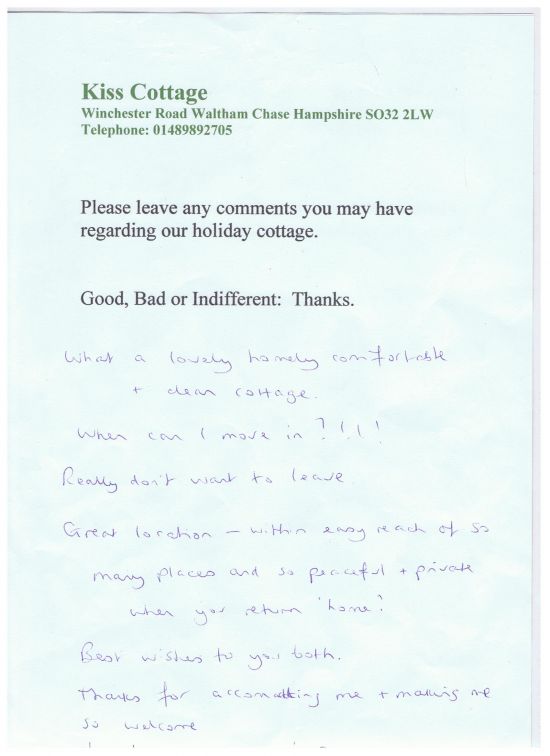 Kiss Cottage
Winchester Road Waltham Chase Hampshire SO32 2LW
Telephone: 01489892705
Please leave any comments you may have
regarding our holiday cottage.
Good, Bad or Indifferent: Thanks.
What a lovely homely comfortable
+ clean cottage.
When can I move in ?!!!
Really don't want to leave
Great location – within easy reach of so
many places and so peaceful + private
when you return 'home'!
Best wishes to you both.
Thanks for me + making me
so welcome